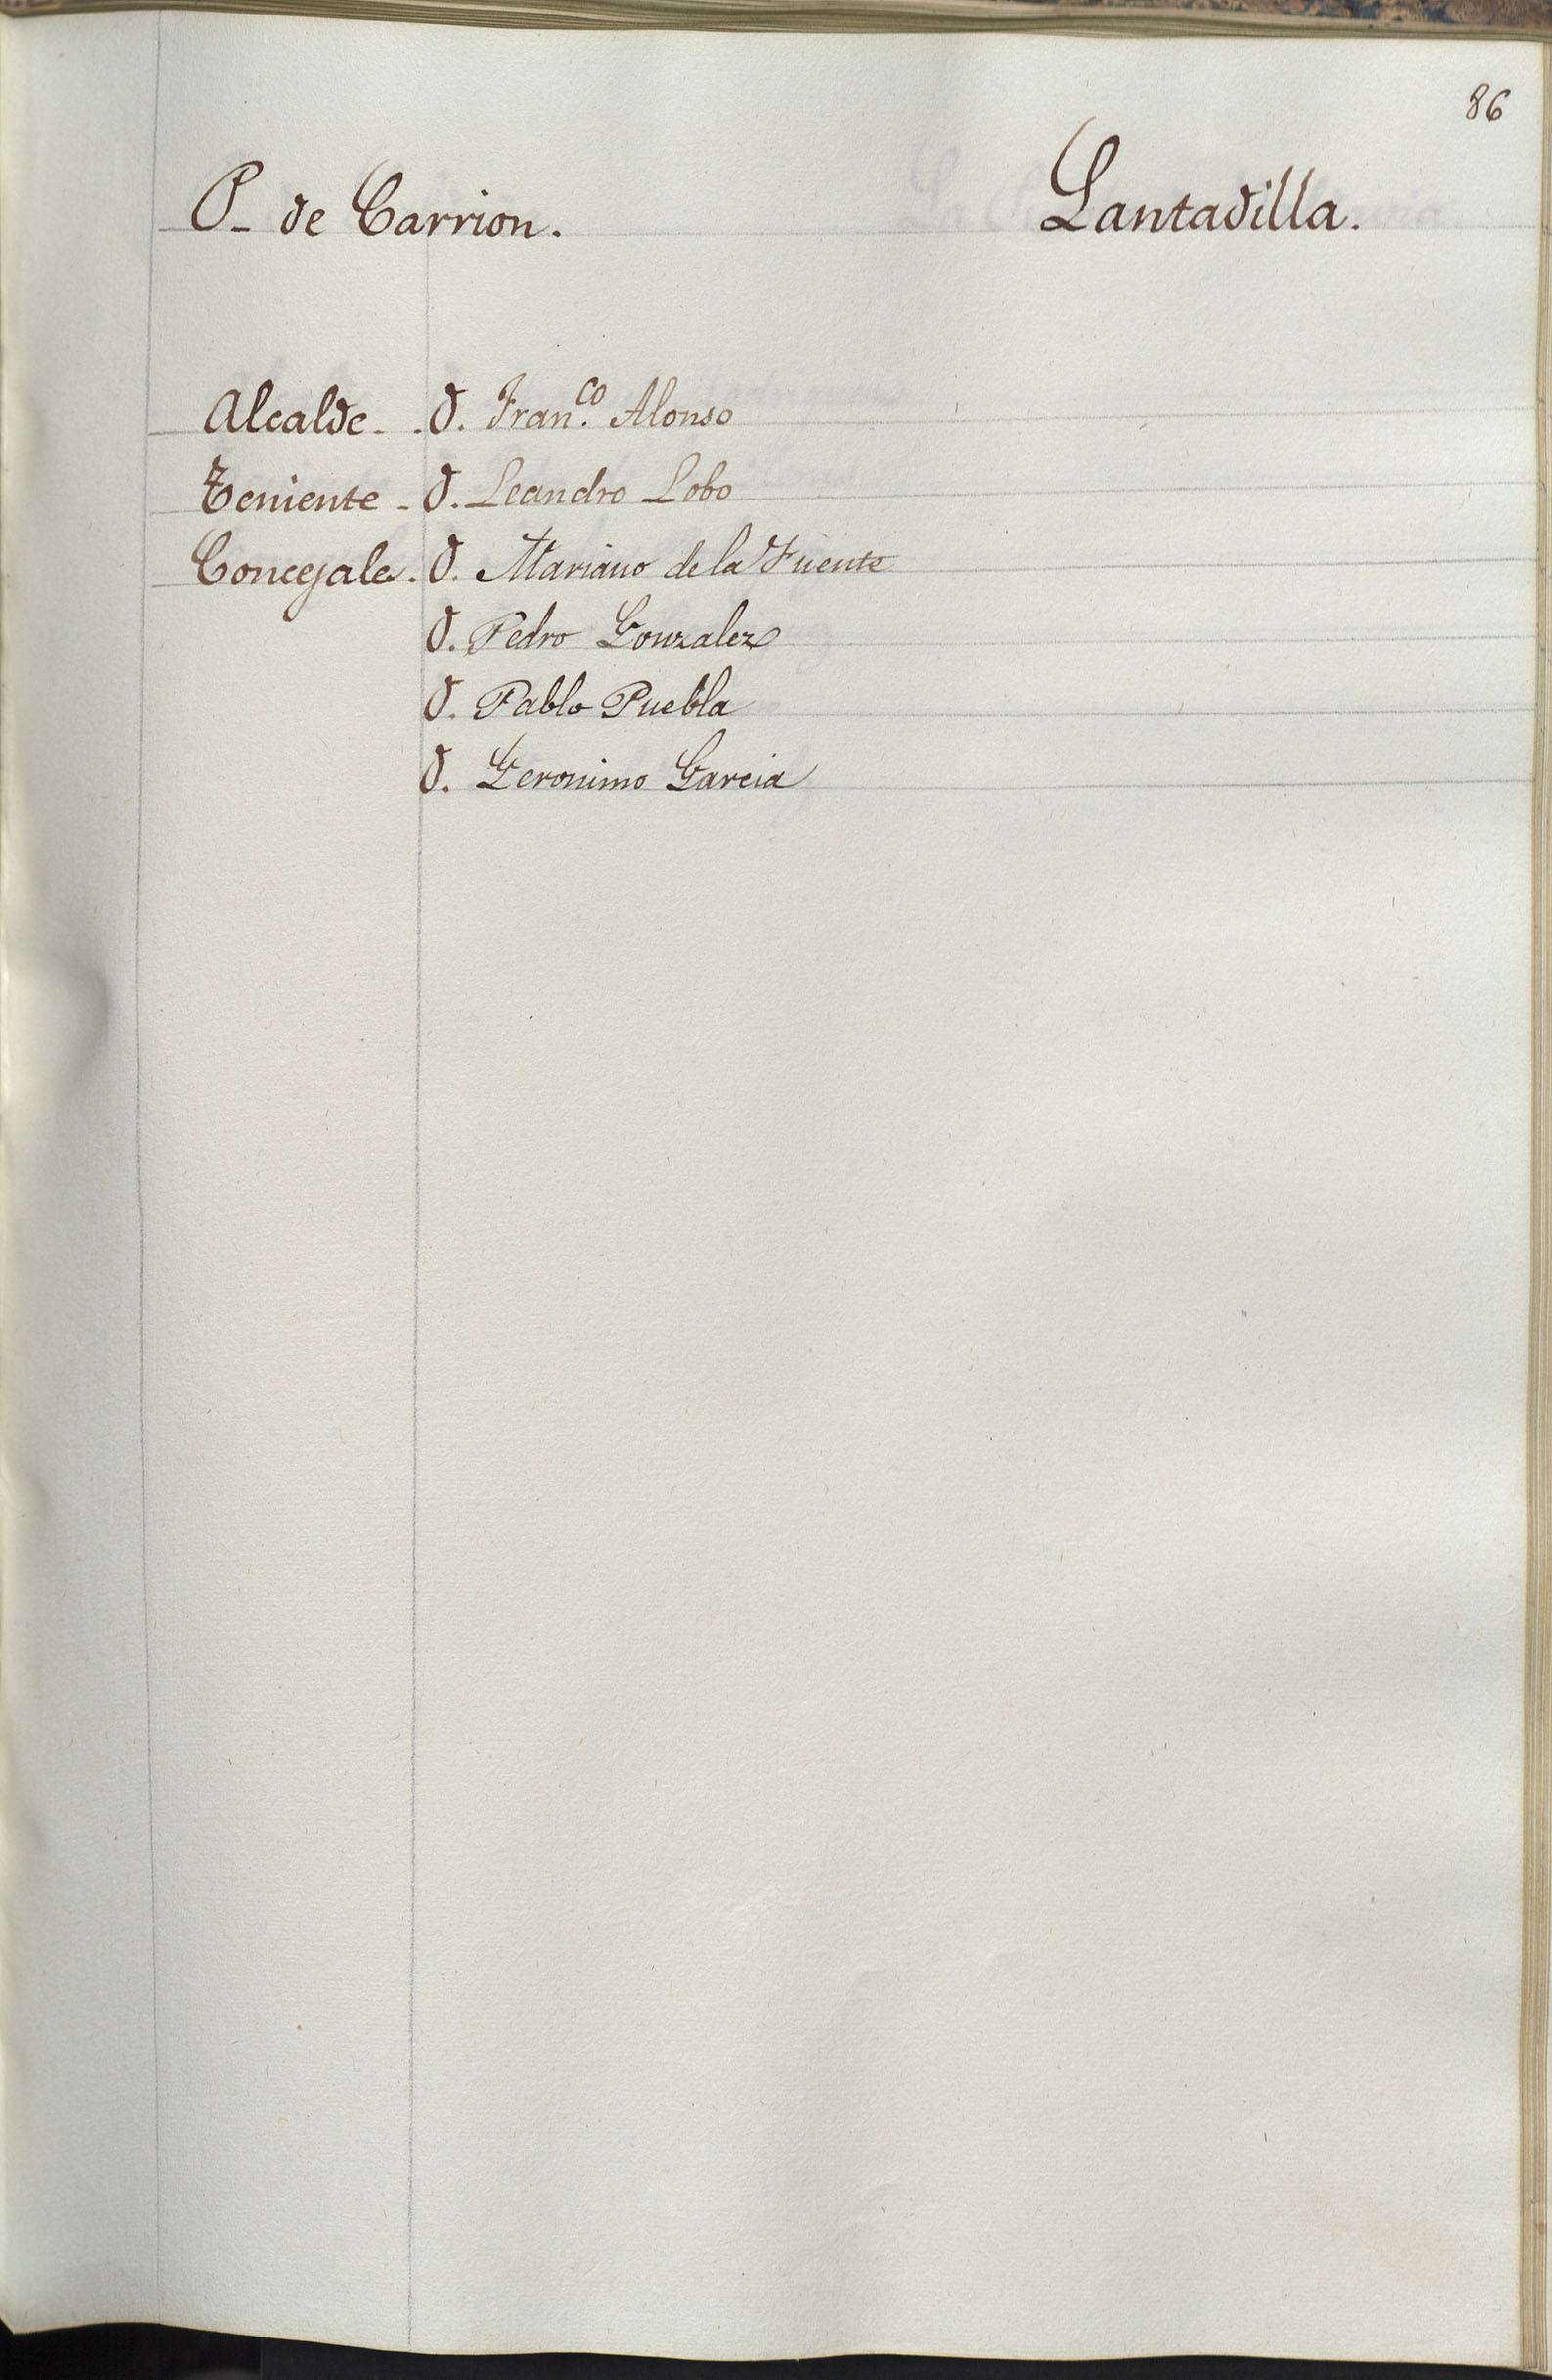 86
P- de Carrion. Lantadilla.
Alcalde - . D. Fran.co Alonso
Teniente - D. Leandro Lobo
Concejales. D. Mariano de la Fuente
D. Pedro Gonzalez
D. Pablo Puebla
D. Geronimo Garcia